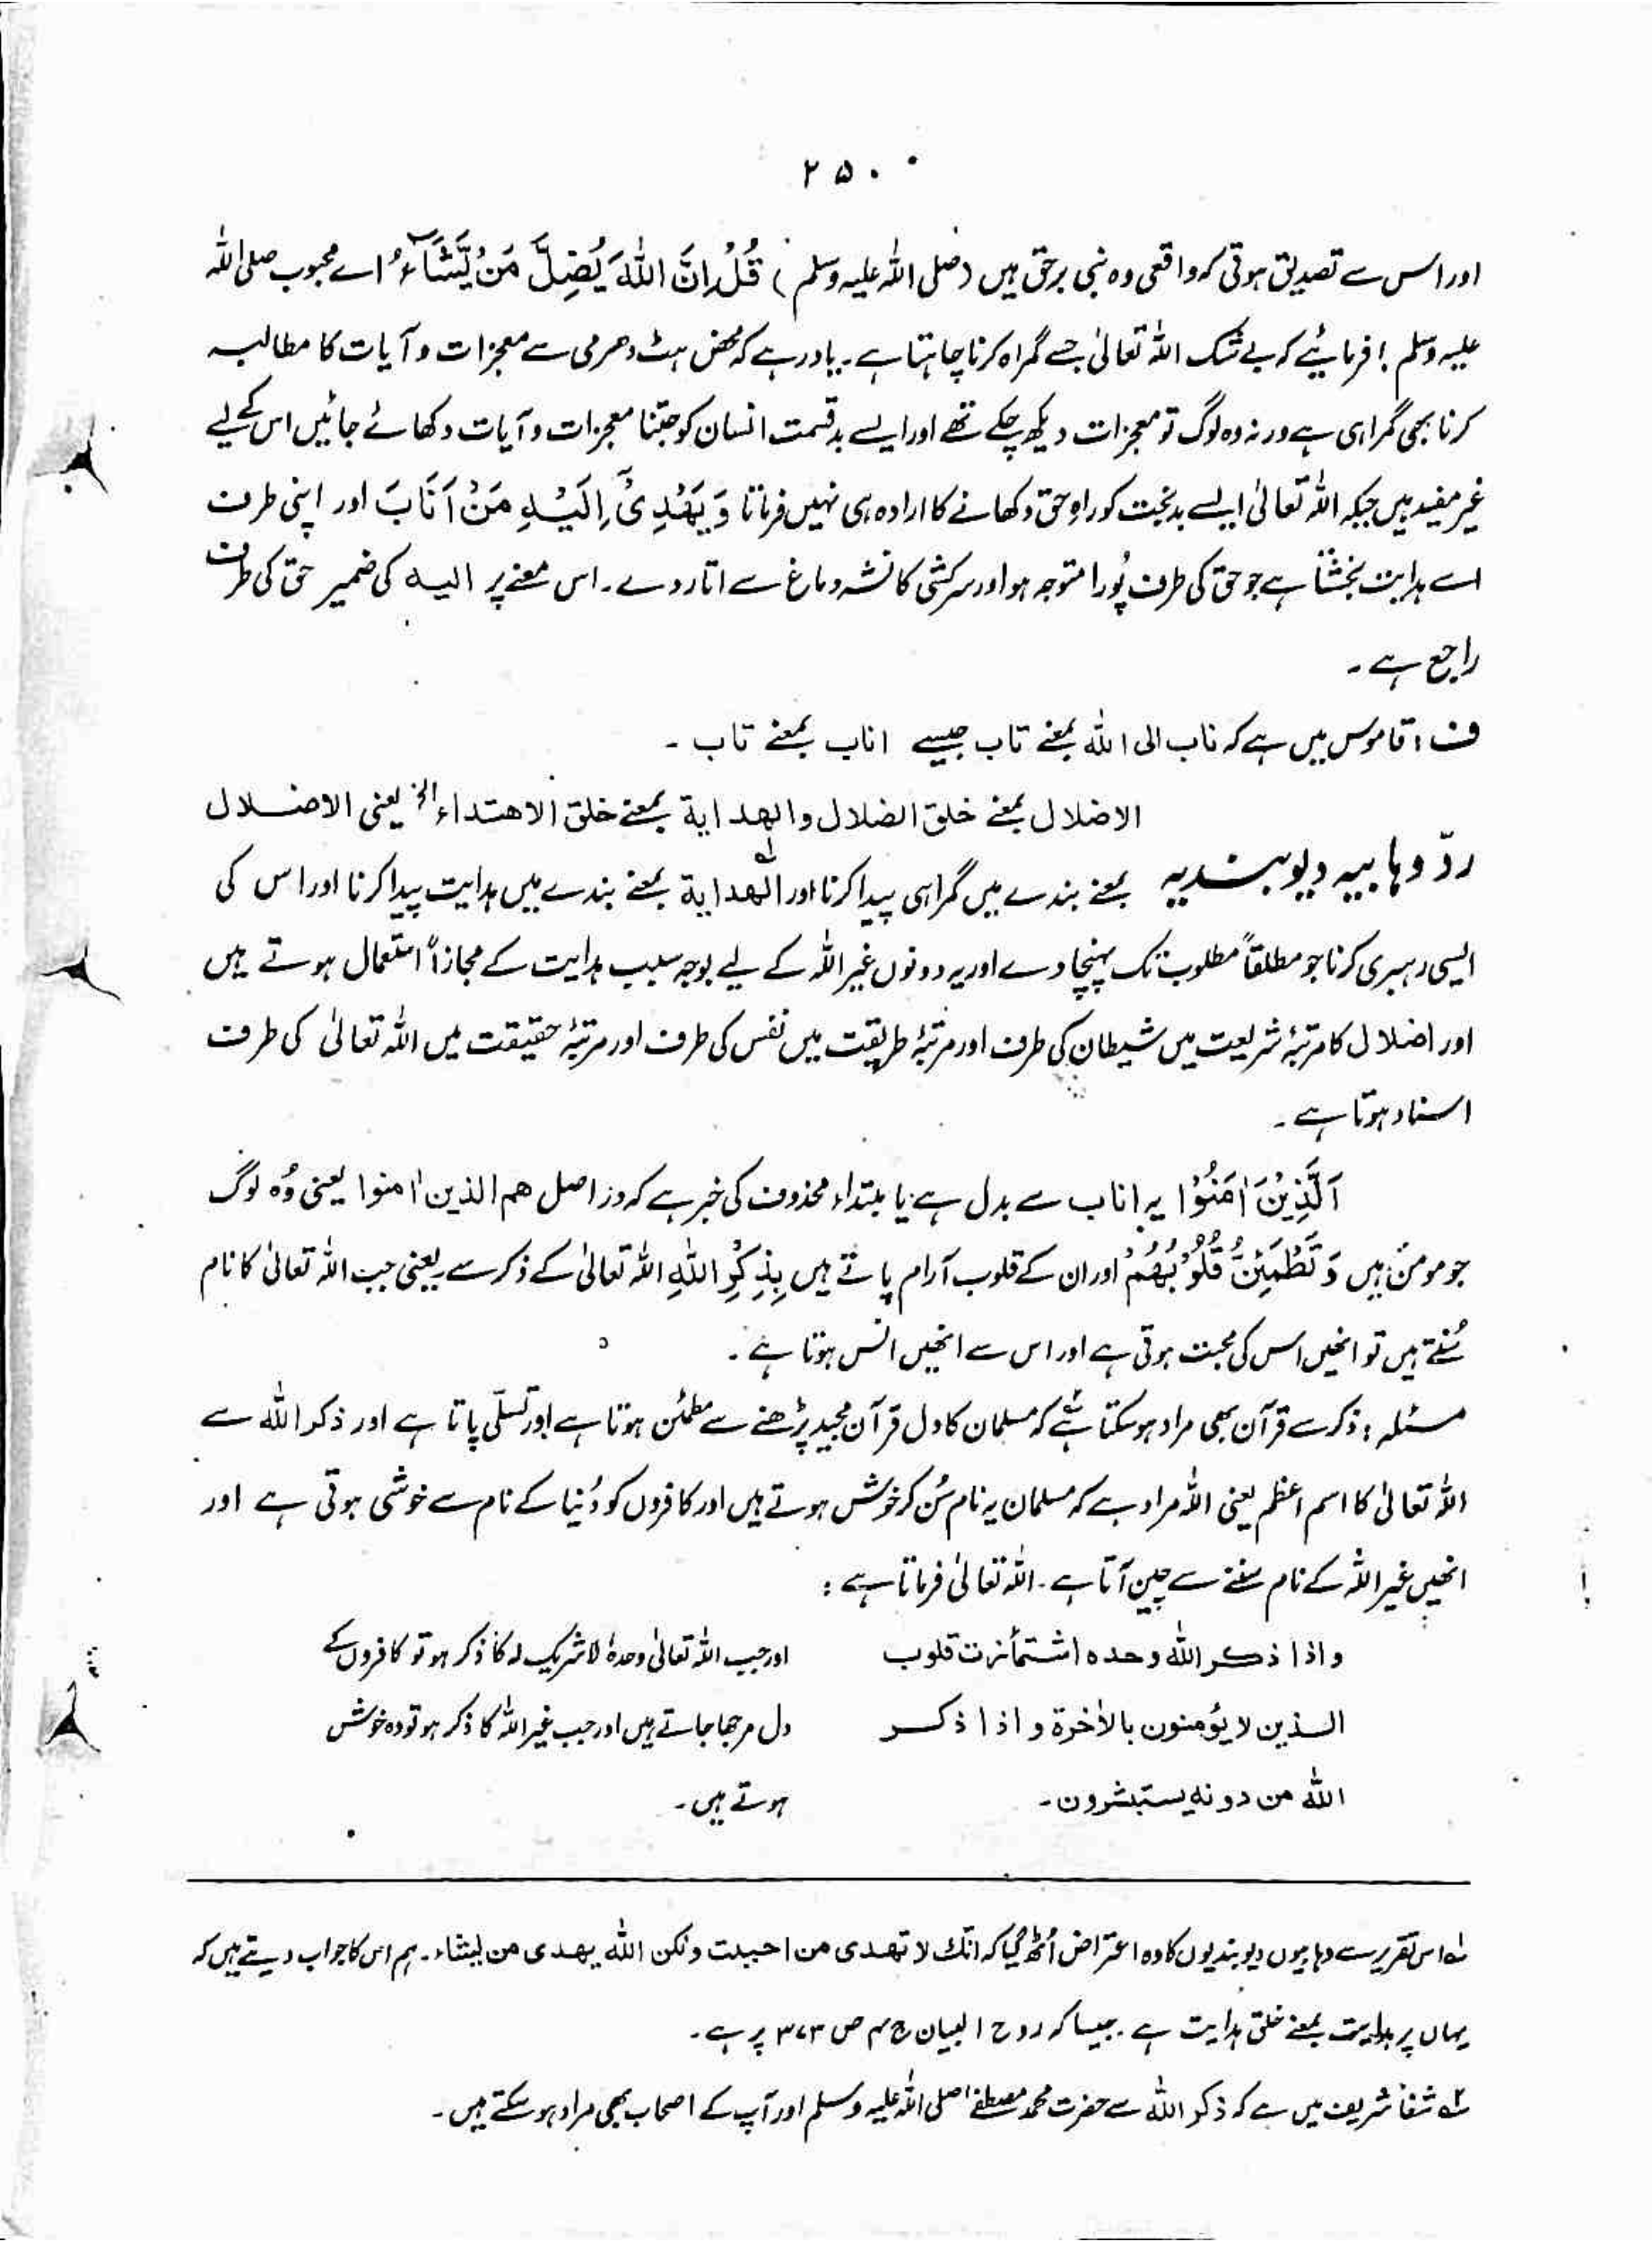 ۲۵۰
اور اس سے تصدیق ہوتی کہ واقعی وہ نبی برحق ہیں (صلی اللہ علیہ وسلم) قُلْ اِنَّ اللّٰہَ یُضِلُّ مَنْ یَّشَآءُ اے محبوب صلی اللہ
علیہ وسلم! فرمائیے کہ بے شک اللہ تعالیٰ جسے گمراہ کرنا چاہتا ہے۔ یاد رہے کہ محض ہٹ دھرمی سے معجزات و آیات کا مطالبہ
کرنا بھی گمراہی ہے ورنہ وہ لوگ تو معجزات دیکھ چکے تھے اور ایسے بدقسمت انسان کو جتنا معجزات و آیات دکھائے جائیں اس کے لیے
غیر مفید ہیں جبکہ اللہ تعالیٰ ایسے بدبخت کو راہِ حق دکھانے کا ارادہ ہی نہیں فرماتا وَیَھْدِیْٓ اِلَیْہِ مَنْ اَنَابَ اور اپنی طرف
اسے ہدایت بخشتا ہے جو حق کی طرف پُورا متوجہ ہو اور سرکشی کا نشہ دماغ سے اتار دے۔ اس معنے پر الیہ کی ضمیر حق کی طرف
راجع ہے۔
ف: قاموس میں ہے کہ ناب الی اللہ بمعنے تاب جیسے اناب بمعنے تاب۔
الاضلال بمعنے خلق الضلال والھدایة بمعنے خلق الاھتداء الخ یعنی الاضلال
ردّ وہابیہ دیوبندیہ بمعنے بندے میں گمراہی پیدا کرنا اور الھدایة لہ بمعنے بندے میں ہدایت پیدا کرنا اور اس کی
ایسی رہبری کرنا جو مطلقاً مطلوب تک پہنچا دے اور یہ دونوں غیر اللہ کے لیے بوجہ سبب ہدایت کے مجازاً استعمال ہوتے ہیں
اور اضلال کا مرتبۂ شریعت میں شیطان کی طرف اور مرتبۂ طریقت میں نفس کی طرف اور مرتبۂ حقیقت میں اللہ تعالیٰ کی طرف
اسناد ہوتا ہے۔
اَلَّذِیْنَ اٰمَنُوْا یہ اناب سے بدل ہے یا مبتداء محذوف کی خبر ہے کہ دراصل ھم الذین اٰمنوا یعنی وُہ لوگ
جو مومن ہیں وَتَطْمَئِنُّ قُلُوْبُھُمْ اور ان کے قلوب آرام پاتے ہیں بِذِکْرِ اللّٰہِ اللہ تعالیٰ کے ذکر سے یعنی جب اللہ تعالیٰ کا نام
سُنتے ہیں تو انھیں اس کی محبت ہوتی ہے اور اس سے انھیں انس ہوتا ہے۔
مسئلہ: ذکر سے قرآن بھی مراد ہو سکتا ہے کہ مسلمان کا دل قرآن مجید پڑھنے سے مطمئن ہوتا ہے اور تسلّی پاتا ہے اور ذکر اللہ سے
اللہ تعالیٰ کا اسم اعظم یعنی اللہ مراد ہے کہ مسلمان یہ نام سُن کر خوش ہوتے ہیں اور کافروں کو دُنیا کے نام سے خوشی ہوتی ہے اور
انھیں غیر اللہ کے نام سننے سے چین آتا ہے۔ اللہ تعالیٰ فرماتا ہے:
واذا ذکر اللہ وحدہ اشتمأزت قلوب
الذین لا یؤمنون بالاٰخرة و اذا ذکر
اللہ من دونہ یستبشرون۔
اور جب اللہ تعالیٰ وحدہٗ لا شریک لہ کا ذکر ہو تو کافروں کے
دل مرجھا جاتے ہیں اور جب غیر اللہ کا ذکر ہو تو وہ خوش
ہوتے ہیں۔
لہ اس تقریر سے وہابیوں دیوبندیوں کا وہ اعتراض اُٹھ گیا کہ انک لا تھدی من احببت ولکن اللہ یھدی من یشاء۔ ہم اس کا جواب دیتے ہیں کہ
یہاں پر ہدایت بمعنے خلق ہدایت ہے۔ جیسا کہ روح البیان ج ۴ ص ۳۷۳ پر ہے۔
شفا شریف میں ہے کہ ذکر اللہ سے حضرت محمد مصطفےٰ صلی اللہ علیہ وسلم اور آپ کے اصحاب بھی مراد ہو سکتے ہیں۔